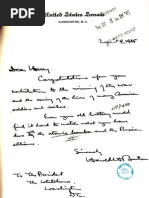 United States Senate
WASHINGTON, D. C.
August 1945
Dear Harry,
Congratulations for your
contribution to the winning of the war
and the saving of the lives of many American
soldiers and sailors.
Even your old battery would
find it hard to match what you have
done by the atomic bomb and the Russian
alliance.
Sincerely
Harold H. Burton
To The President
The White House
Washington
D.C.